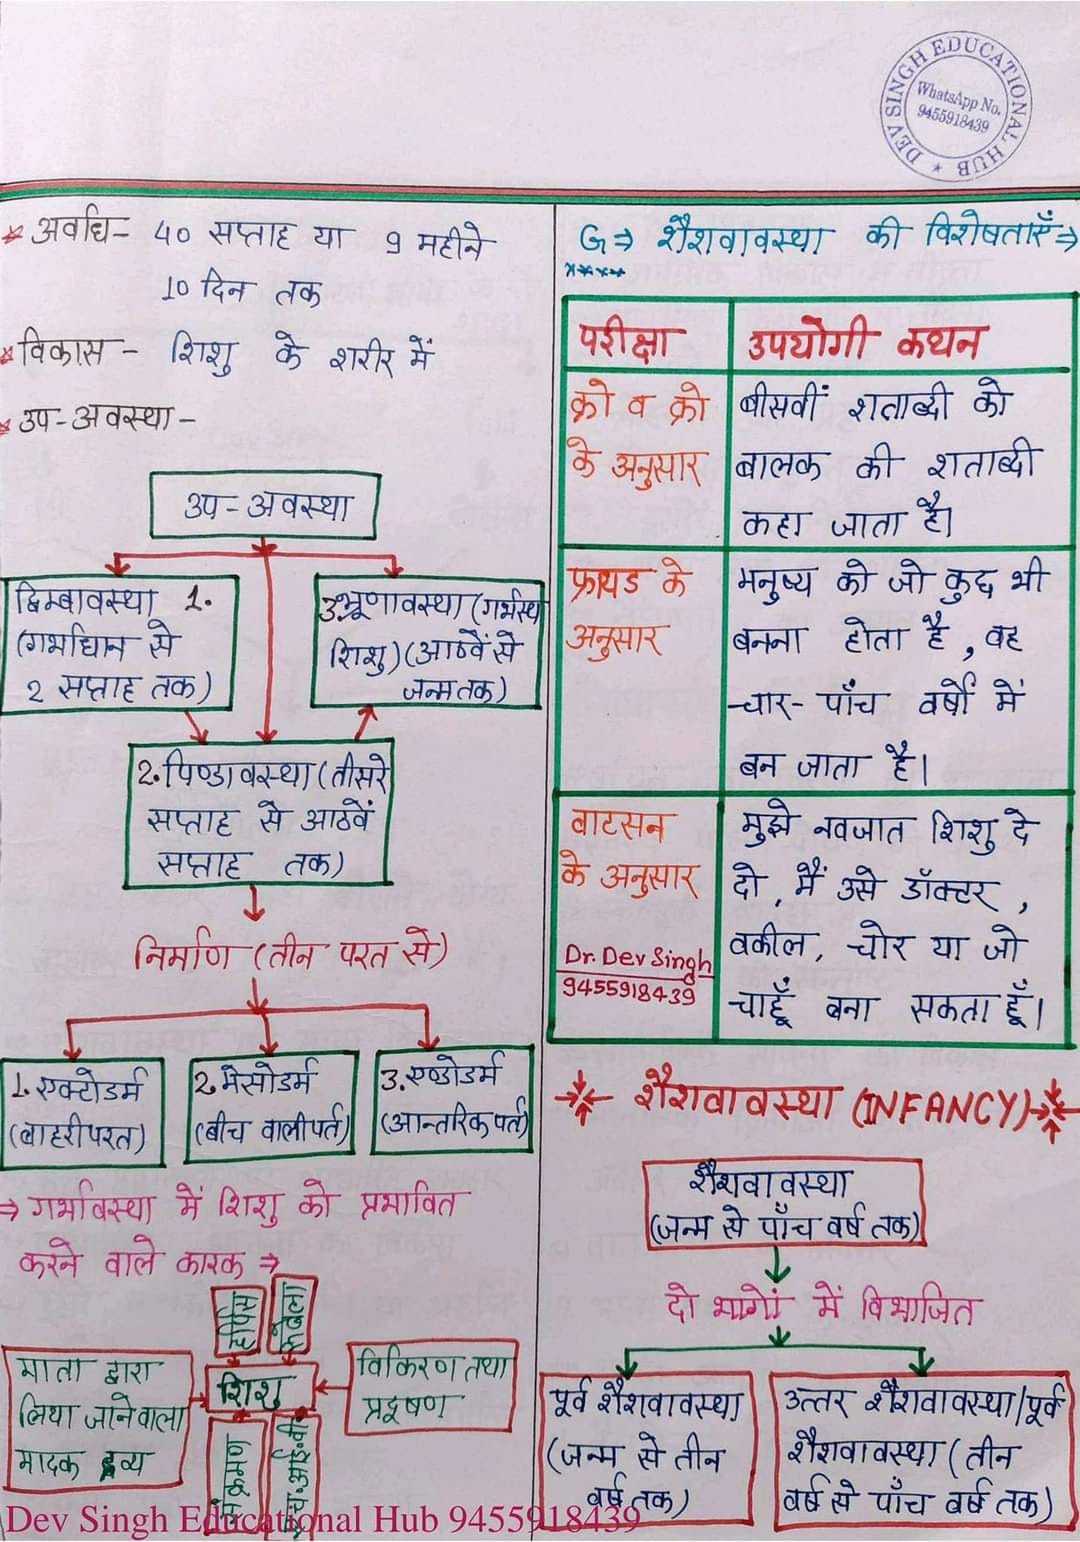 DEV SINGH EDUCATIONAL HUB
WhatsApp No.
9455918439
* अवधि- 40 सप्ताह या 9 महीने
10 दिन तक
* विकास - शिशु के शरीर में
* उप-अवस्था -
उप-अवस्था
डिम्बावस्था 1.
(गर्भाधान से
2 सप्ताह तक)
3.भ्रूणावस्था (गर्भस्थ
शिशु) (आठवें से
जन्मतक)
2.पिण्डावस्था (तीसरे
सप्ताह से आठवें
सप्ताह तक)
निर्माण (तीन परत से)
1. एक्टोडर्म
(बाहरी परत)
2. मेसोडर्म
(बीच वाली पर्त)
3. एण्डोडर्म
(आन्तरिक पर्त)
⇒ गर्भावस्था में शिशु को प्रभावित
करने वाले कारक ⇒
माता द्वारा
लिया जाने वाला
मादक द्रव्य
शिशु
विकिरण तथा
प्रदूषण
संक्रमण
एच.आई.वी
G ⇒ शैशवावस्था की विशेषताएँ ⇒
****
परीक्षा उपयोगी कथन
क्रो व क्रो
के अनुसार
बीसवीं शताब्दी को
बालक की शताब्दी
कहा जाता है।
फ्रायड के
अनुसार
मनुष्य को जो कुछ भी
बनना होता है, वह
चार- पाँच वर्षों में
बन जाता है।
वाटसन
के अनुसार
Dr. Dev Singh
9455918439
मुझे नवजात शिशु दे
दो, मैं उसे डॉक्टर,
वकील, चोर या जो
चाहूँ बना सकता हूँ।
शैशवावस्था (INFANCY)
शैशवावस्था
(जन्म से पाँच वर्ष तक)
दो भागों में विभाजित
पूर्व शैशवावस्था
(जन्म से तीन
वर्ष तक)
उत्तर शैशवावस्था/पूर्व
शैशवावस्था (तीन
वर्ष से पाँच वर्ष तक)
Dev Singh Educational Hub 9455918439